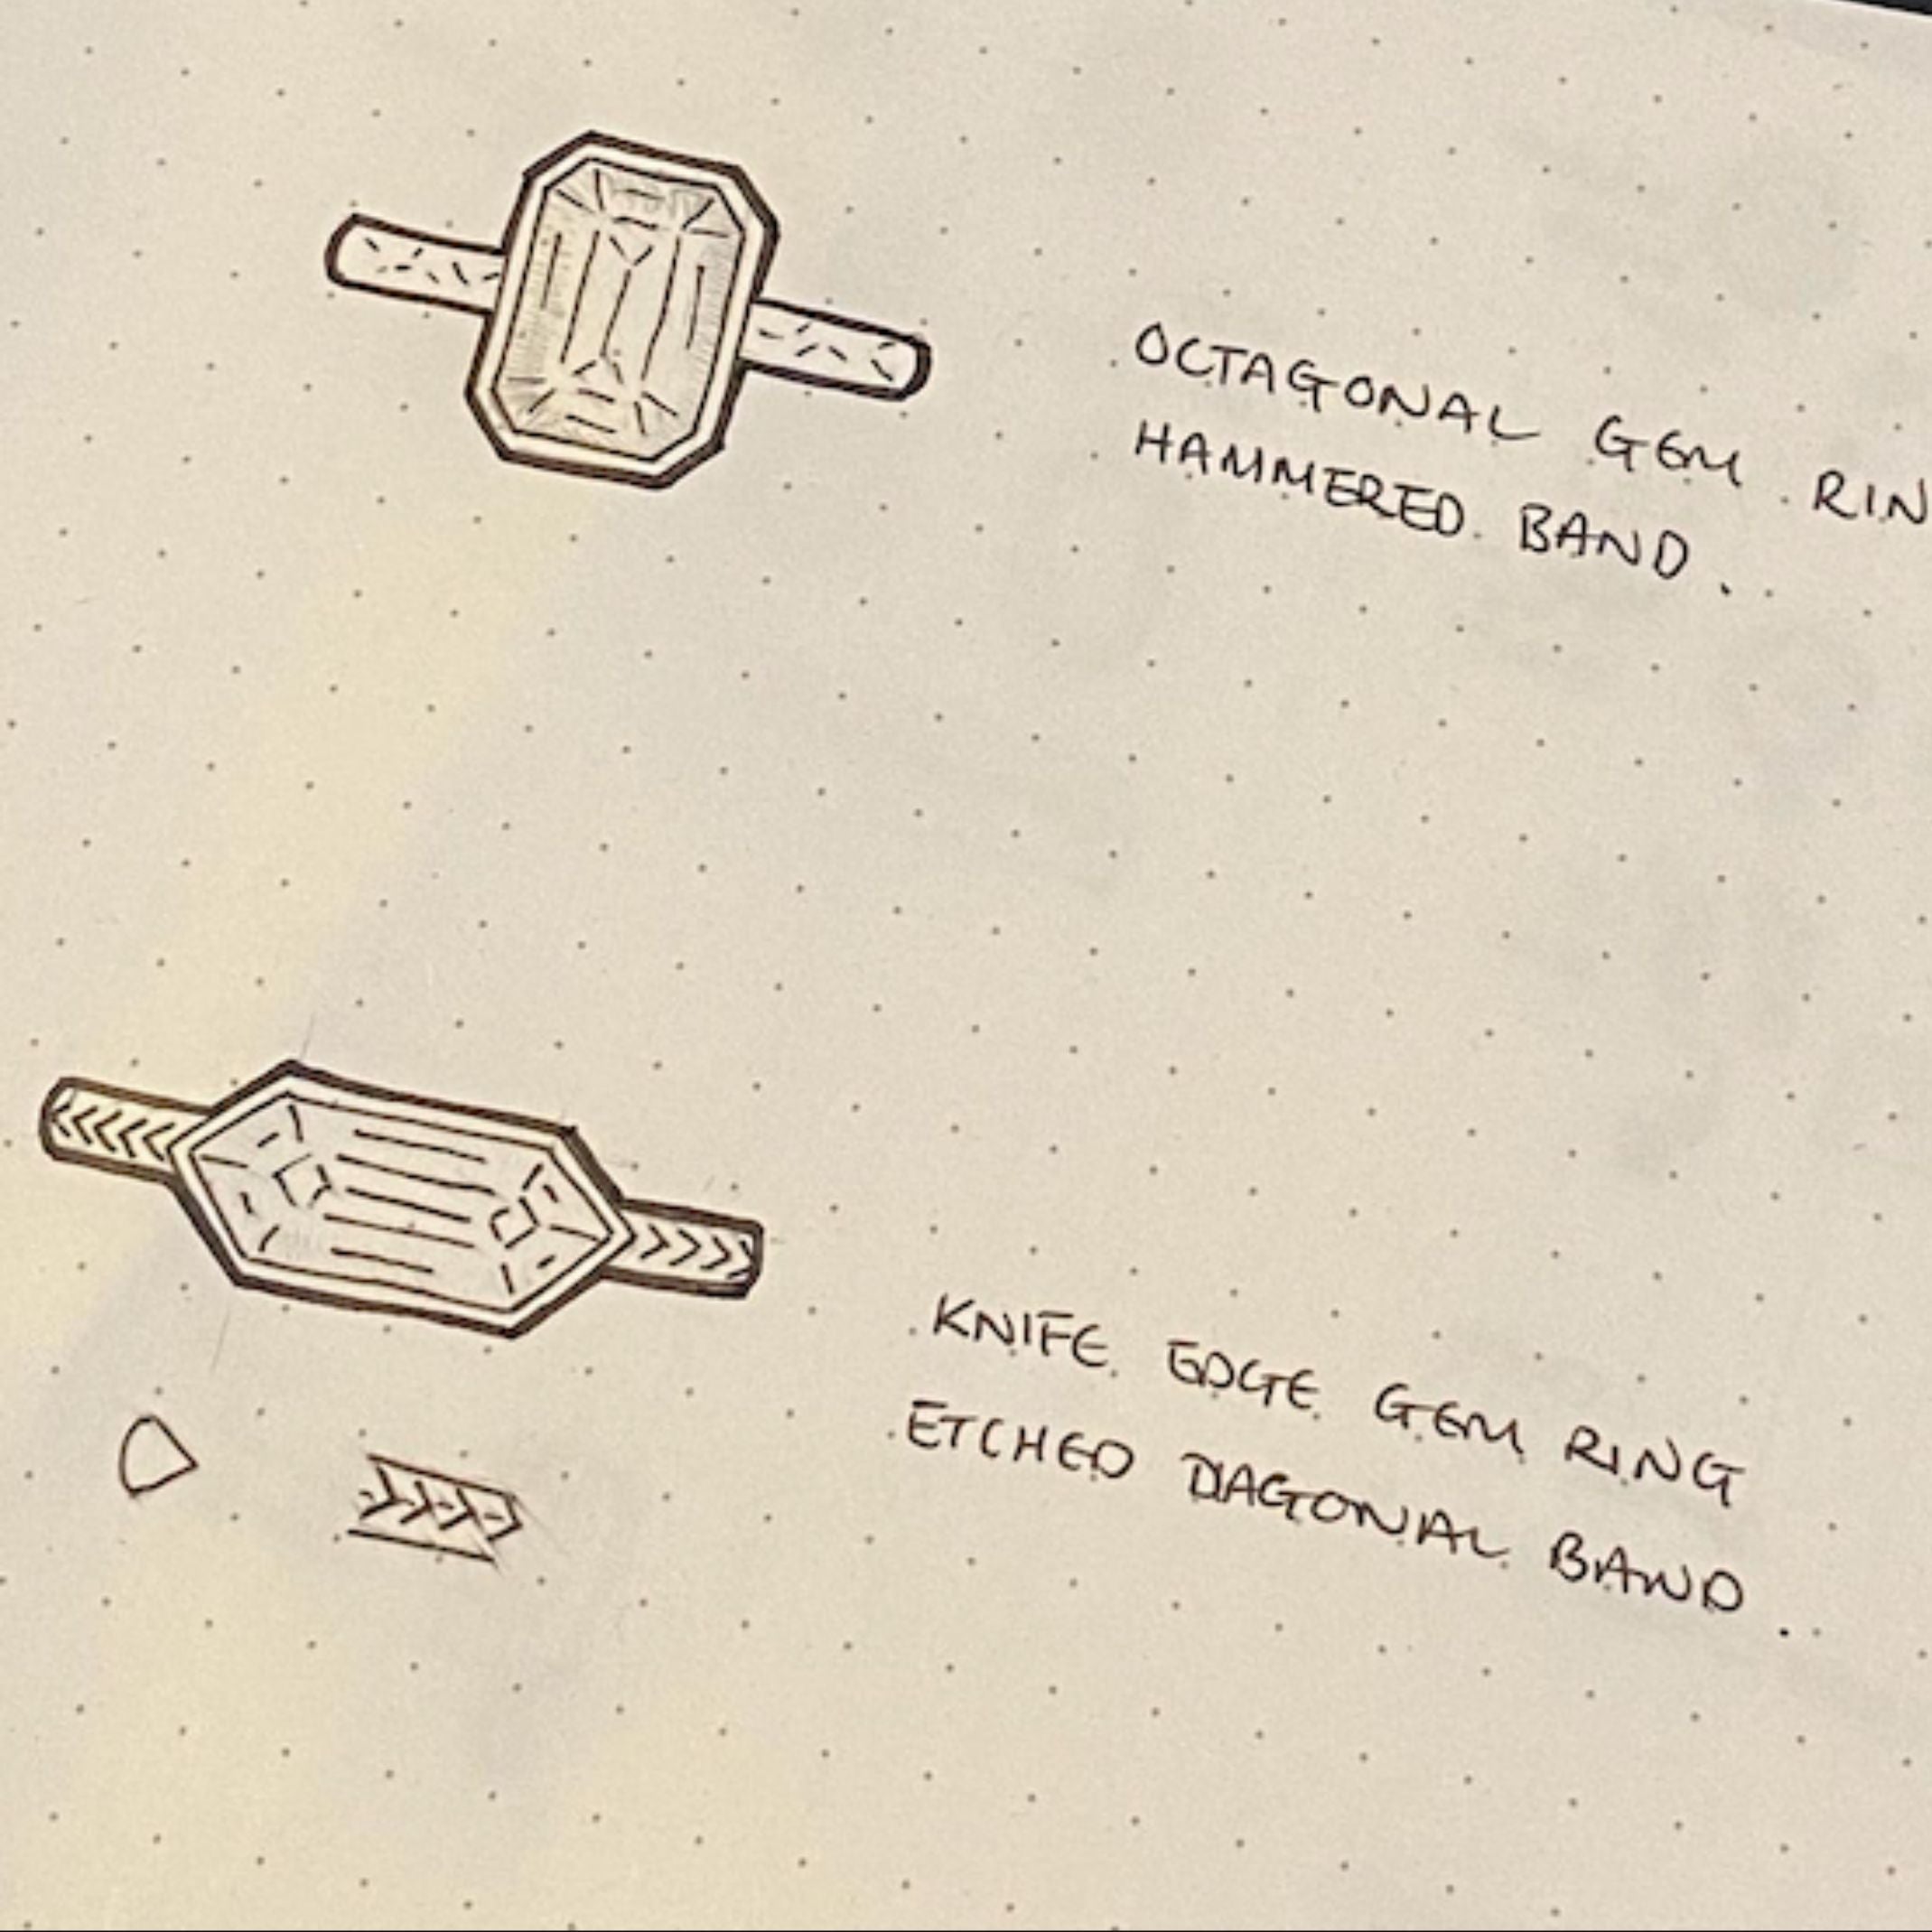 OCTAGONAL GEM RIN
HAMMERED BAND.
KNIFE EDGE GEM RING
ETCHED DIAGONAL BAND.